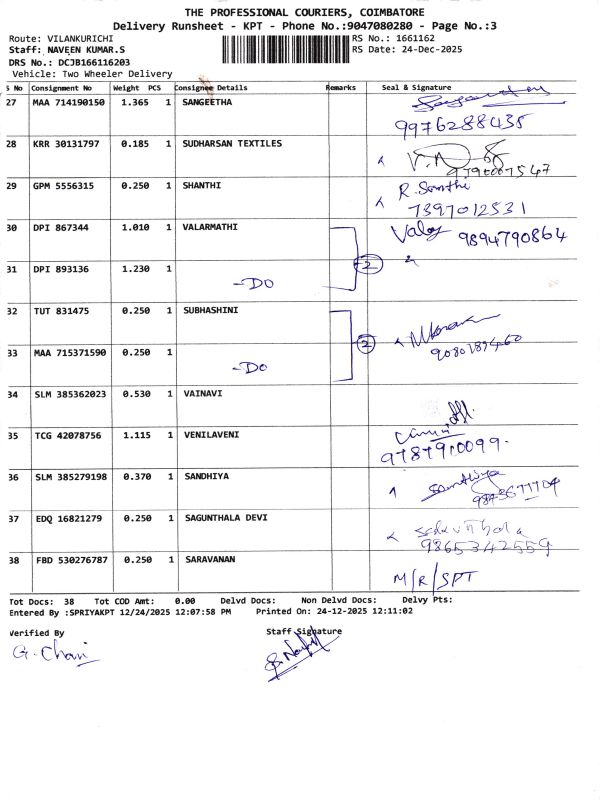 THE PROFESSIONAL COURIERS, COIMBATORE
Delivery Runsheet - KPT - Phone No.:9047080280 - Page No.:3
Route: VILANKURICHI RS No.: 1661162
Staff: NAVEEN KUMAR.S RS Date: 24-Dec-2025
DRS No.: DCJB166116203
Vehicle: Two Wheeler Delivery
S No Consignment No Weight PCS Consignee Details Remarks Seal & Signature
27 MAA 714190150 1.365 1 SANGEETHA
9976288435
28 KRR 30131797 0.185 1 SUDHARSAN TEXTILES
29 GPM 5556315 0.250 1 SHANTHI R. Santhi
7397012531
30 DPI 867344 1.010 1 VALARMATHI Valar 9894790864
31 DPI 893136 1.230 1 2
-DO
32 TUT 831475 0.250 1 SUBHASHINI
33 MAA 715371590 0.250 1 2
-DO
34 SLM 385362023 0.530 1 VAINAVI
35 TCG 42078756 1.115 1 VENILAVENI
9787910099.
36 SLM 385279198 0.370 1 SANDHIYA
37 EDQ 16821279 0.250 1 SAGUNTHALA DEVI
9865342559
38 FBD 530276787 0.250 1 SARAVANAN
M/R/SPT
Tot Docs: 38 Tot COD Amt: 0.00 Delvd Docs: Non Delvd Docs: Delvy Pts:
Entered By :SPRIYAKPT 12/24/2025 12:07:58 PM Printed On: 24-12-2025 12:11:02
Verified By Staff Signature